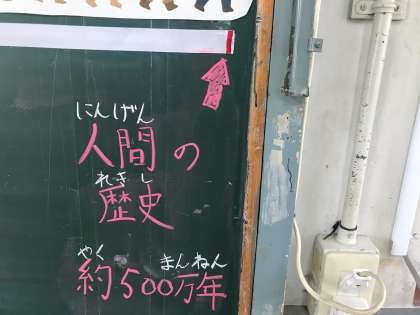 にんげん
人間の
れきし
歴史
やく まんねん
約500万年